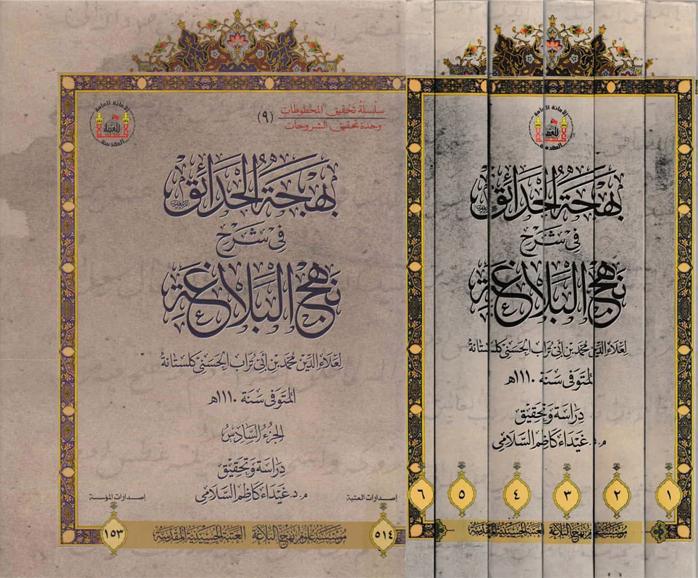 سلسلة تحقيق المخطوطات
وحدة تحقيق الشروحات (٩)
الأمانة العامة
المقدسة
بهجة الحدائق
في شرح
نهج البلاغة
لعلاء الدين محمد بن أبي تراب الحسني كلستانة
المتوفى سنة ١١١٠هـ
الجزء السادس
دراسة وتحقيق
م.د. غيداء كاظم السلامي
إصدارات العتبة
٥١٤
إصدارات المؤسسة
١٥٣
مؤسسة علوم نهج البلاغة العتبة الحسينية المقدسة
الأمانة العامة
المقدسة
بهجة الحدائق
في شرح
نهج البلاغة
لعلاء الدين محمد بن أبي تراب الحسني كلستانة
المتوفى سنة ١١١٠هـ
دراسة وتحقيق
م.د. غيداء كاظم السلامي
١ ٢ ٣ ٤ ٥ ٦
مؤسسة علوم نهج البلاغة العتبة الحسينية المقدسة